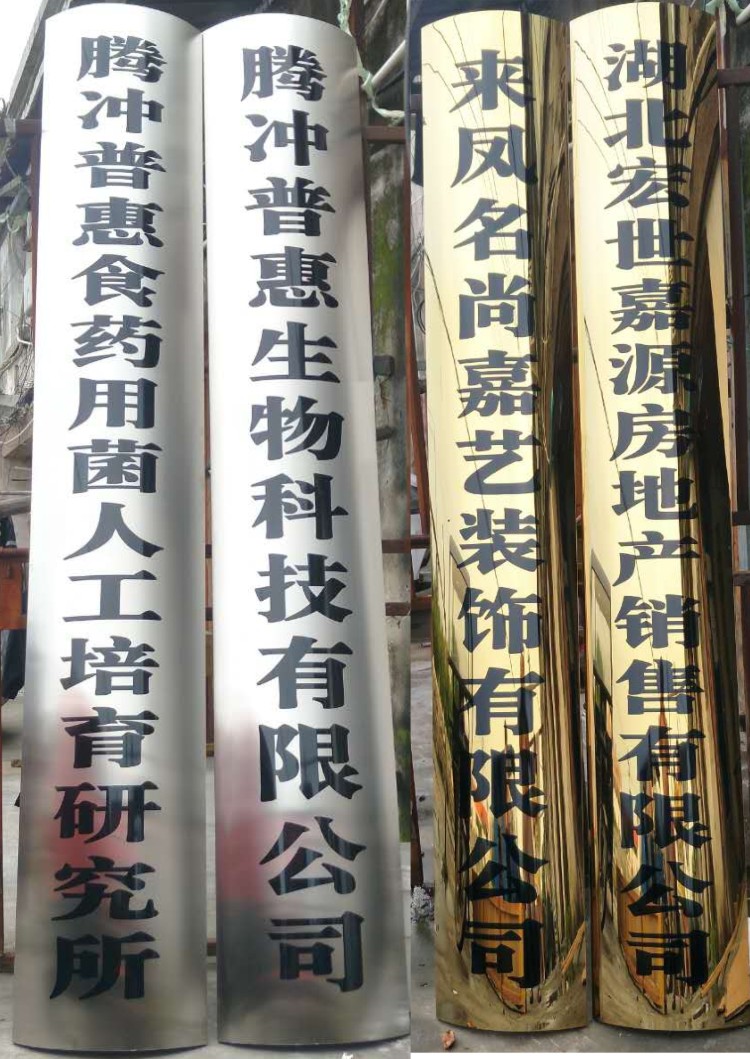 腾冲普惠食药用菌人工培育研究所
腾冲普惠生物科技有限公司
来凤名尚嘉艺装饰有限公司
湖北宏世嘉源房地产销售有限公司